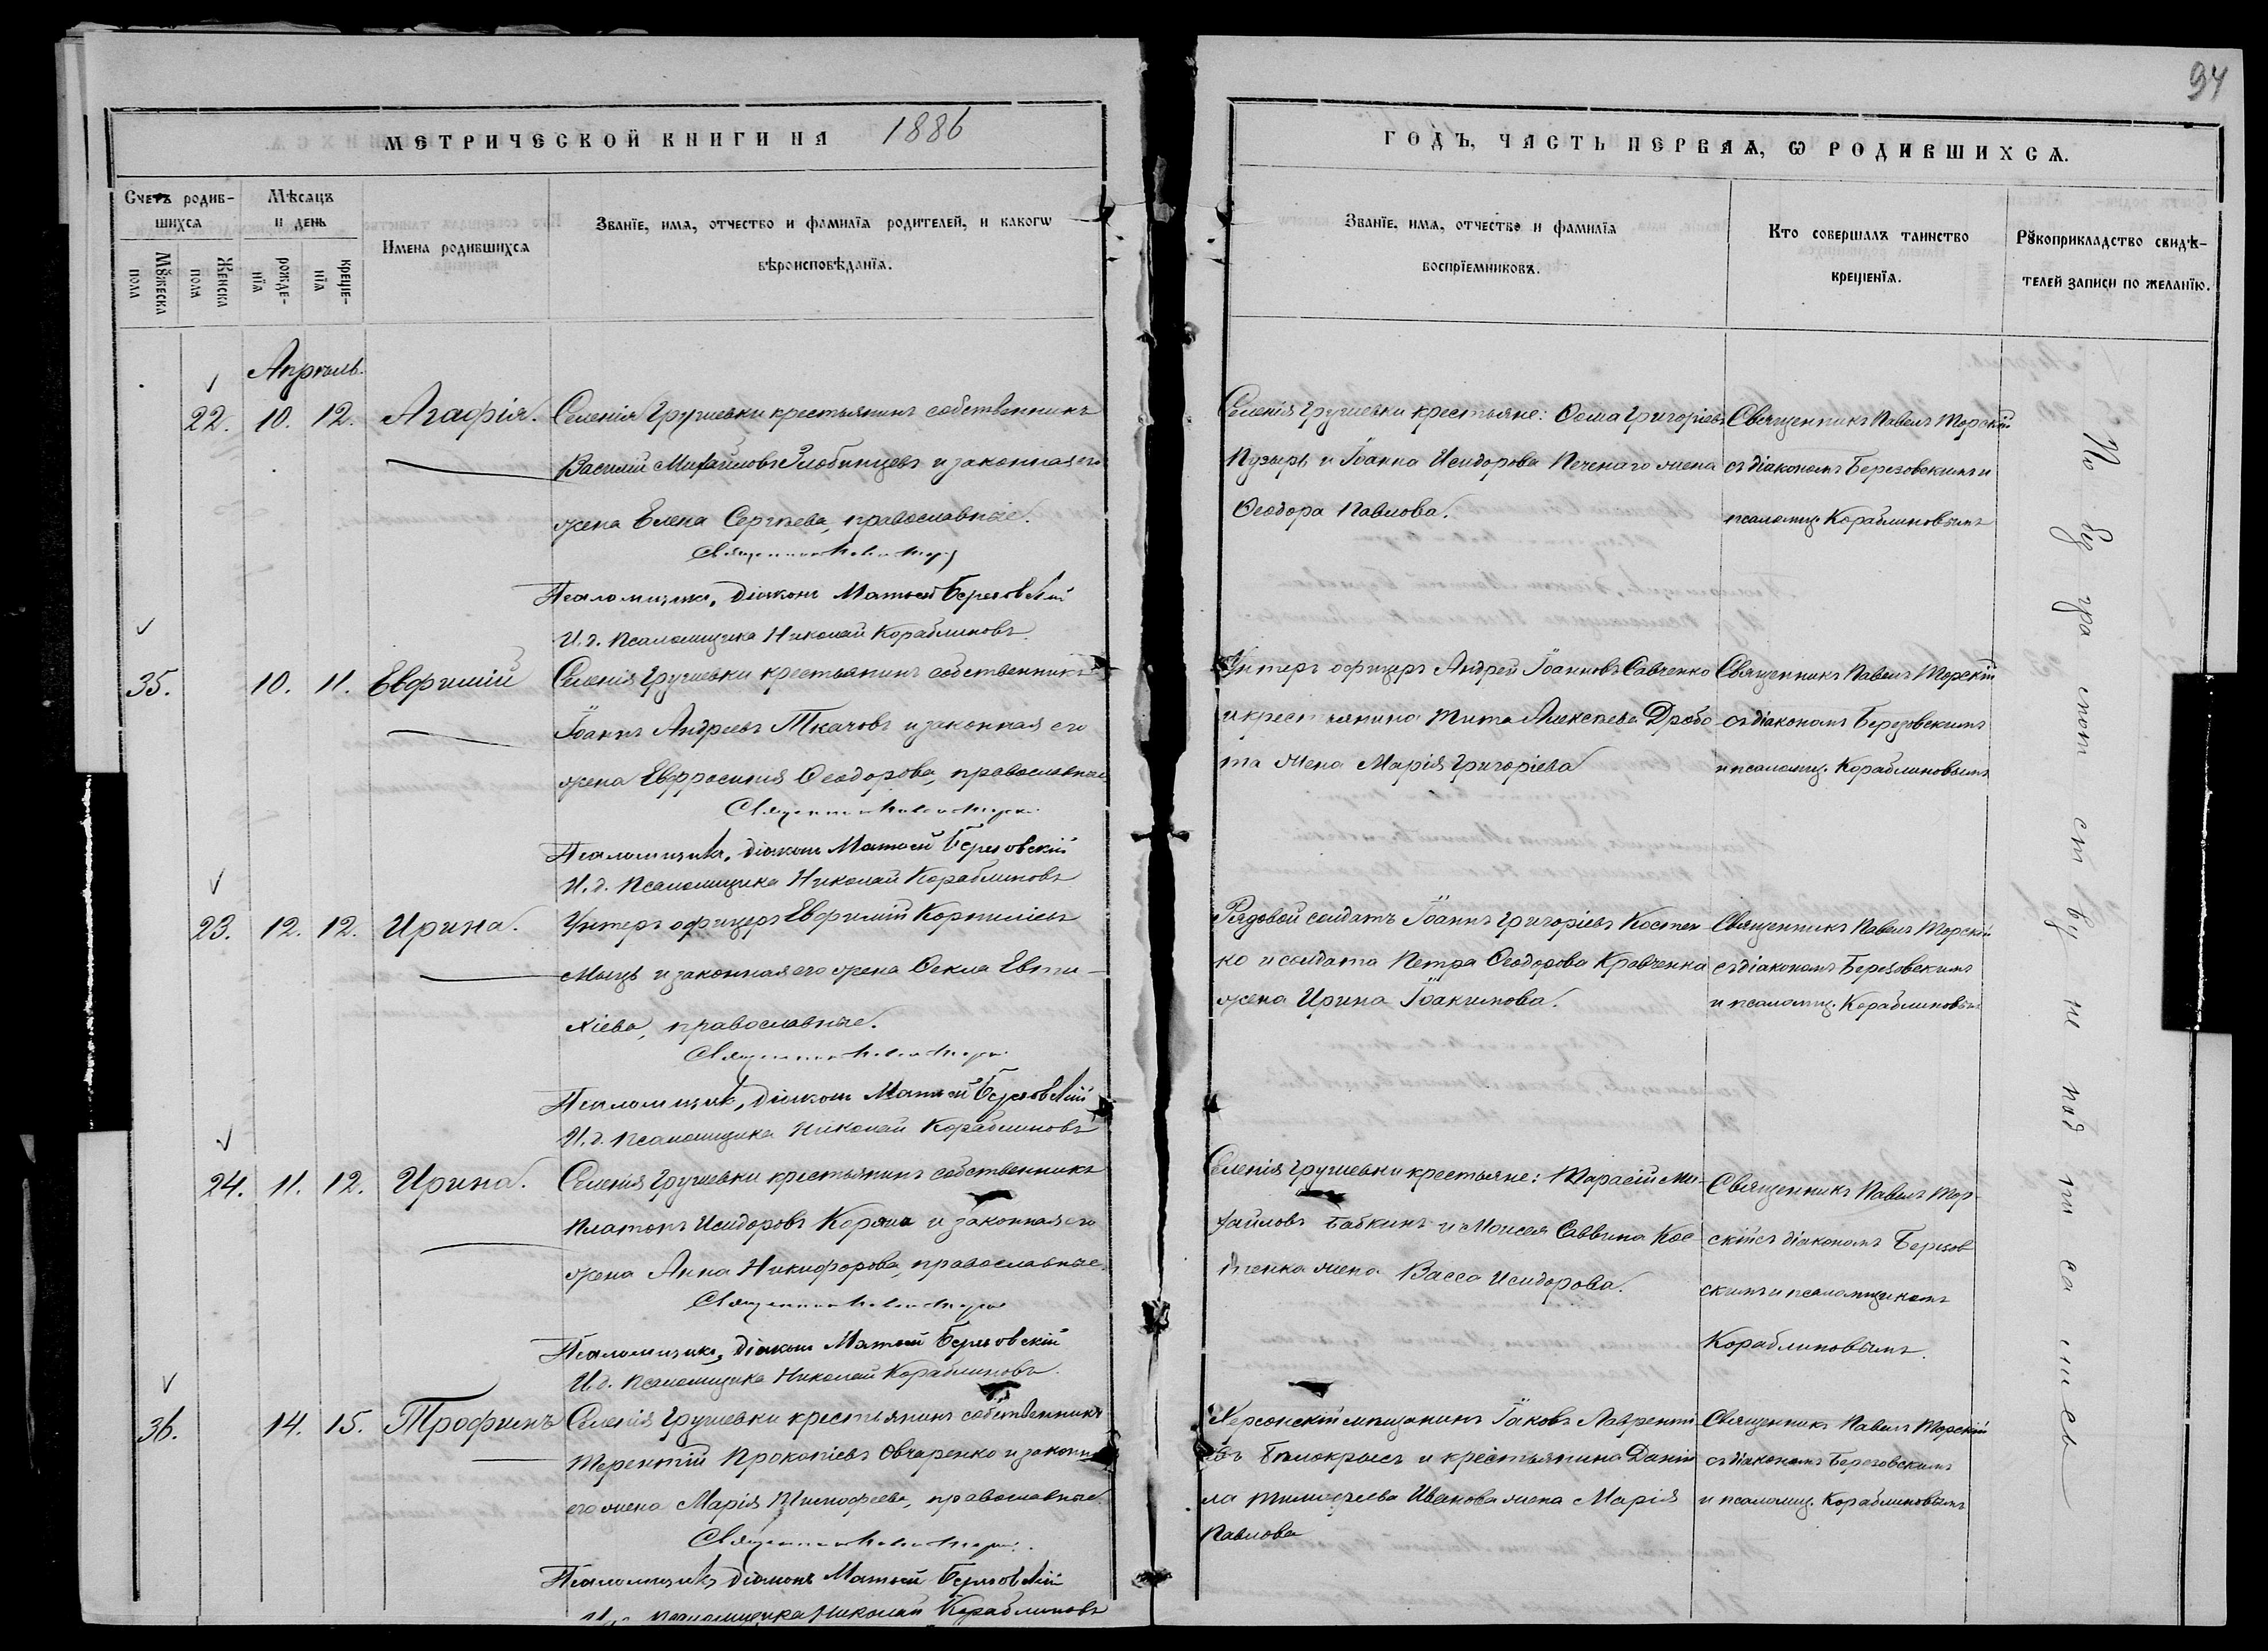 94
МЕТРИЧЕСКОЙ КНИГИ НА 1886
ГОДЪ, ЧАСТЬ ПЕРВАЯ, Ѡ РОДИВШИХСѦ.
Счетъ родив-
шихся
Мꙋжеска
пола
Женска
пола
Мѣсяцъ
и день
рожде-
нїя
креще-
нїя
Имена родившихся
Званїе, имя, отчество и фамилїя родителей, и какогѡ
вѣроисповѣданїя.
Званїе, имя, отчество и фамилїя
воспрїемниковъ.
Кто совершалъ таинство
крещенїя.
Рꙋкоприкладство свидѣ-
телей записи по желанїю.
Апрѣль.
22. 10. 12. Агафія.
Селенія Грушевки крестьянинъ собственникъ
Василій Михайловъ Злобинцевъ и законная его
жена Елена Сергѣева, православные.
Псаломщикъ, діаконъ Матѳей Березовскій
И. д. псаломщика Николай Кораблиновъ
Селенія Грушевки крестьяне: Ѳома Григоріевъ
Пузырь и Іоанна Исидорова Печенаго жена
Ѳеодора Павлова.
Священникъ Павелъ Торскій
съ діакономъ Березовскимъ и
псаломщ. Кораблиновымъ
35. 10. 11. Евфимій
Селенія Грушевки крестьянинъ собственникъ
Іоаннъ Андреевъ Ткачовъ и законная его
жена Евфросинія Ѳеодорова, православные
Псаломщикъ, діаконъ Матѳей Березовскій
И. д. псаломщика Николай Кораблиновъ
Унтеръ офицеръ Андрей Іоанновъ Савченко
и крестьянина Тита Алексѣева Дробо-
та жена Марія Григоріева
Священникъ Павелъ Торскій
съ діакономъ Березовскимъ
и псаломщ. Кораблиновымъ
23. 12. 12. Ирина.
Унтеръ офицеръ Евфимій Корниліевъ
Мыцъ и законная его жена Ѳекла Евти-
хіева, православные.
Псаломщикъ, діаконъ Матѳей Березовскій
И. д. псаломщика Николай Кораблиновъ
Рядовой солдатъ Іоаннъ Григоріевъ Костен-
ко и солдата Петра Ѳеодорова Кравченка
жена Ирина Іоакимова.
Священникъ Павелъ Торскій
съ діакономъ Березовскимъ
и псаломщ. Кораблиновымъ
24. 11. 12. Ирина.
Селенія Грушевки крестьянинъ собственникъ
Платонъ Исидоровъ и законная его
жена Анна Никифорова, православные.
Псаломщикъ, діаконъ Матѳей Березовскій
И. д. псаломщика Николай Кораблиновъ
Селенія Грушевки крестьяне: Тарасій Ми-
хайловъ Бабкинъ и Моисея Саввина Кос-
тенка жена Васса Исидорова.
Священникъ Павелъ Тор-
скій съ діакономъ Березов
скимъ и псаломщикомъ
Кораблиновымъ.
36. 14. 15. Трофимъ
Селенія Грушевки крестьянинъ собственникъ
Терентій Прокопіевъ Овчаренко и законна
его жена Марія Тимофеева, православные.
Псаломщикъ діаконъ Матѳей Березовскій
И. д. псаломщика Николай Кораблиновъ
Херсонскій мѣщанинъ Іаковъ Лаврентi-
евъ Бѣлокрысъ и крестьянина Даніи
ла Тимофеева Иванова жена Марія
Павлова
Священникъ Павелъ Торскій
съ діакономъ Березовскимъ
и псаломщ. Кораблиновымъ